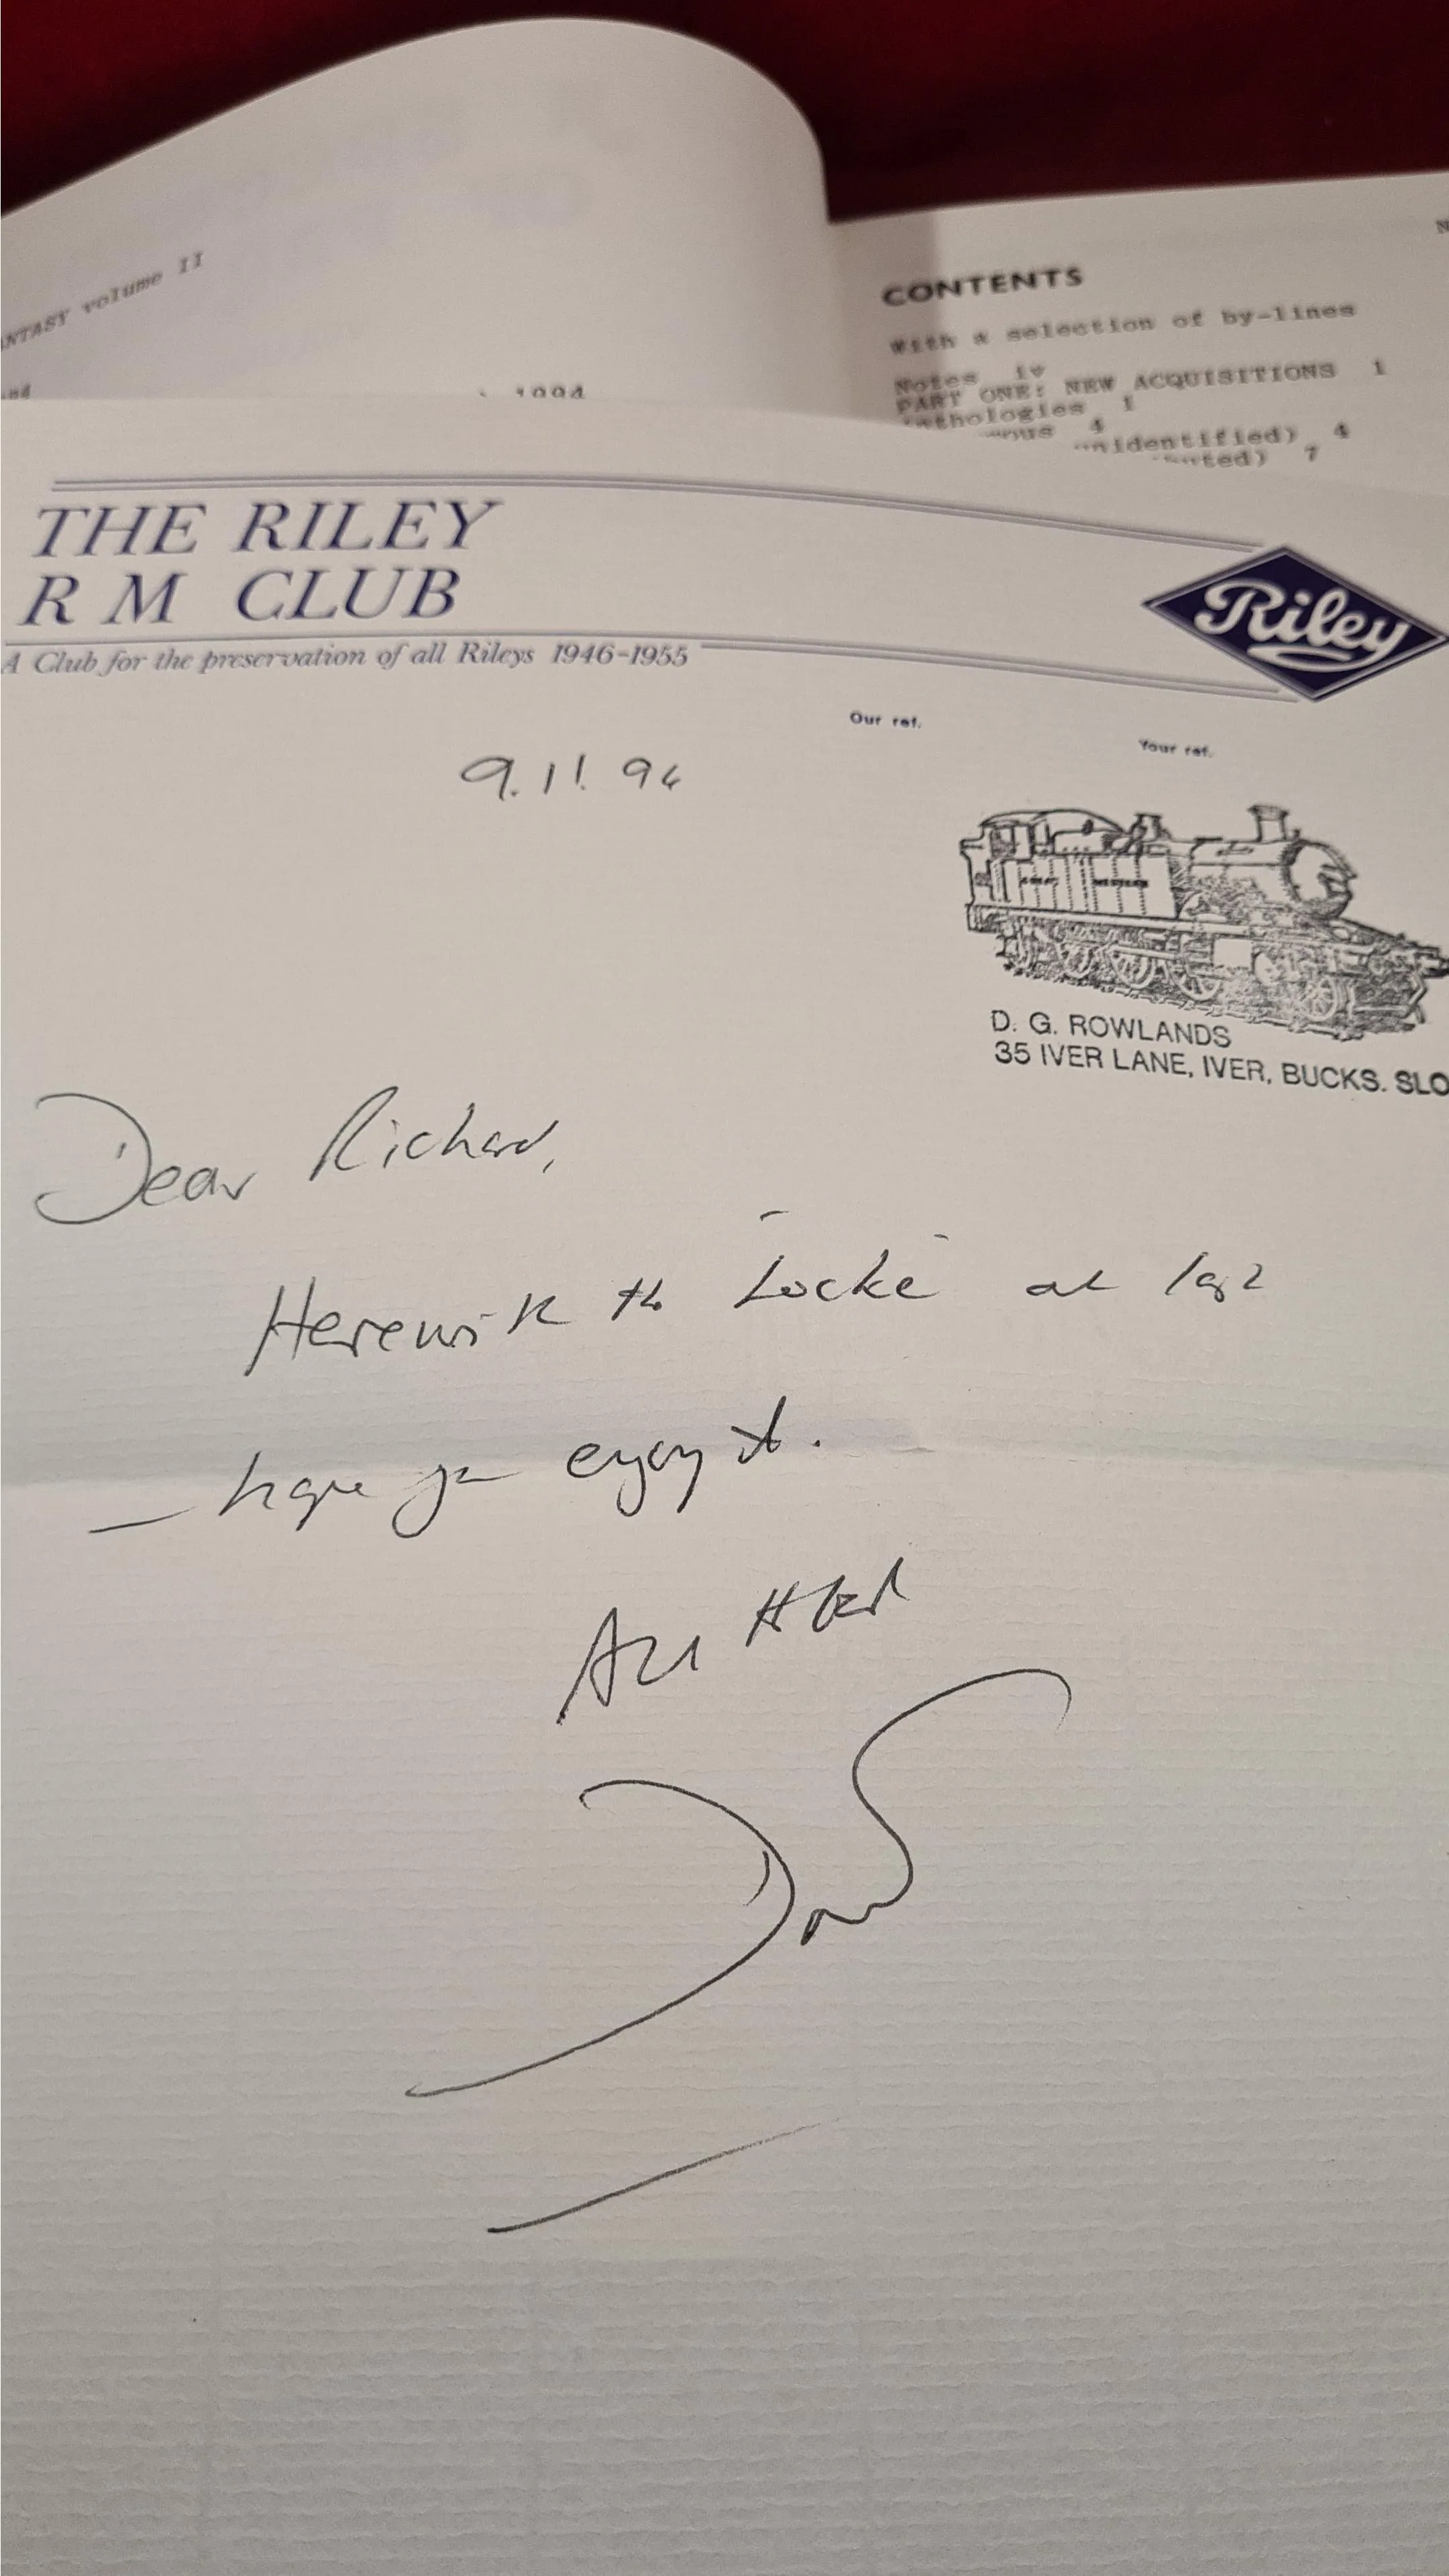 ANTASY volume II
1994
N
CONTENTS
With a selection of by-lines
Notes iv
PART ONE: NEW ACQUISITIONS 1
nthologies 1
mous 4
unidentified) 4
uted) 7
THE RILEY
R M CLUB
A Club for the preservation of all Rileys 1946-1955
Riley
Our ref.
Your ref.
9.11.94
D. G. ROWLANDS
35 IVER LANE, IVER, BUCKS. SLO
Dear Richard,
Herewith the "Locke" at last
— hope you enjoy it.
All the best